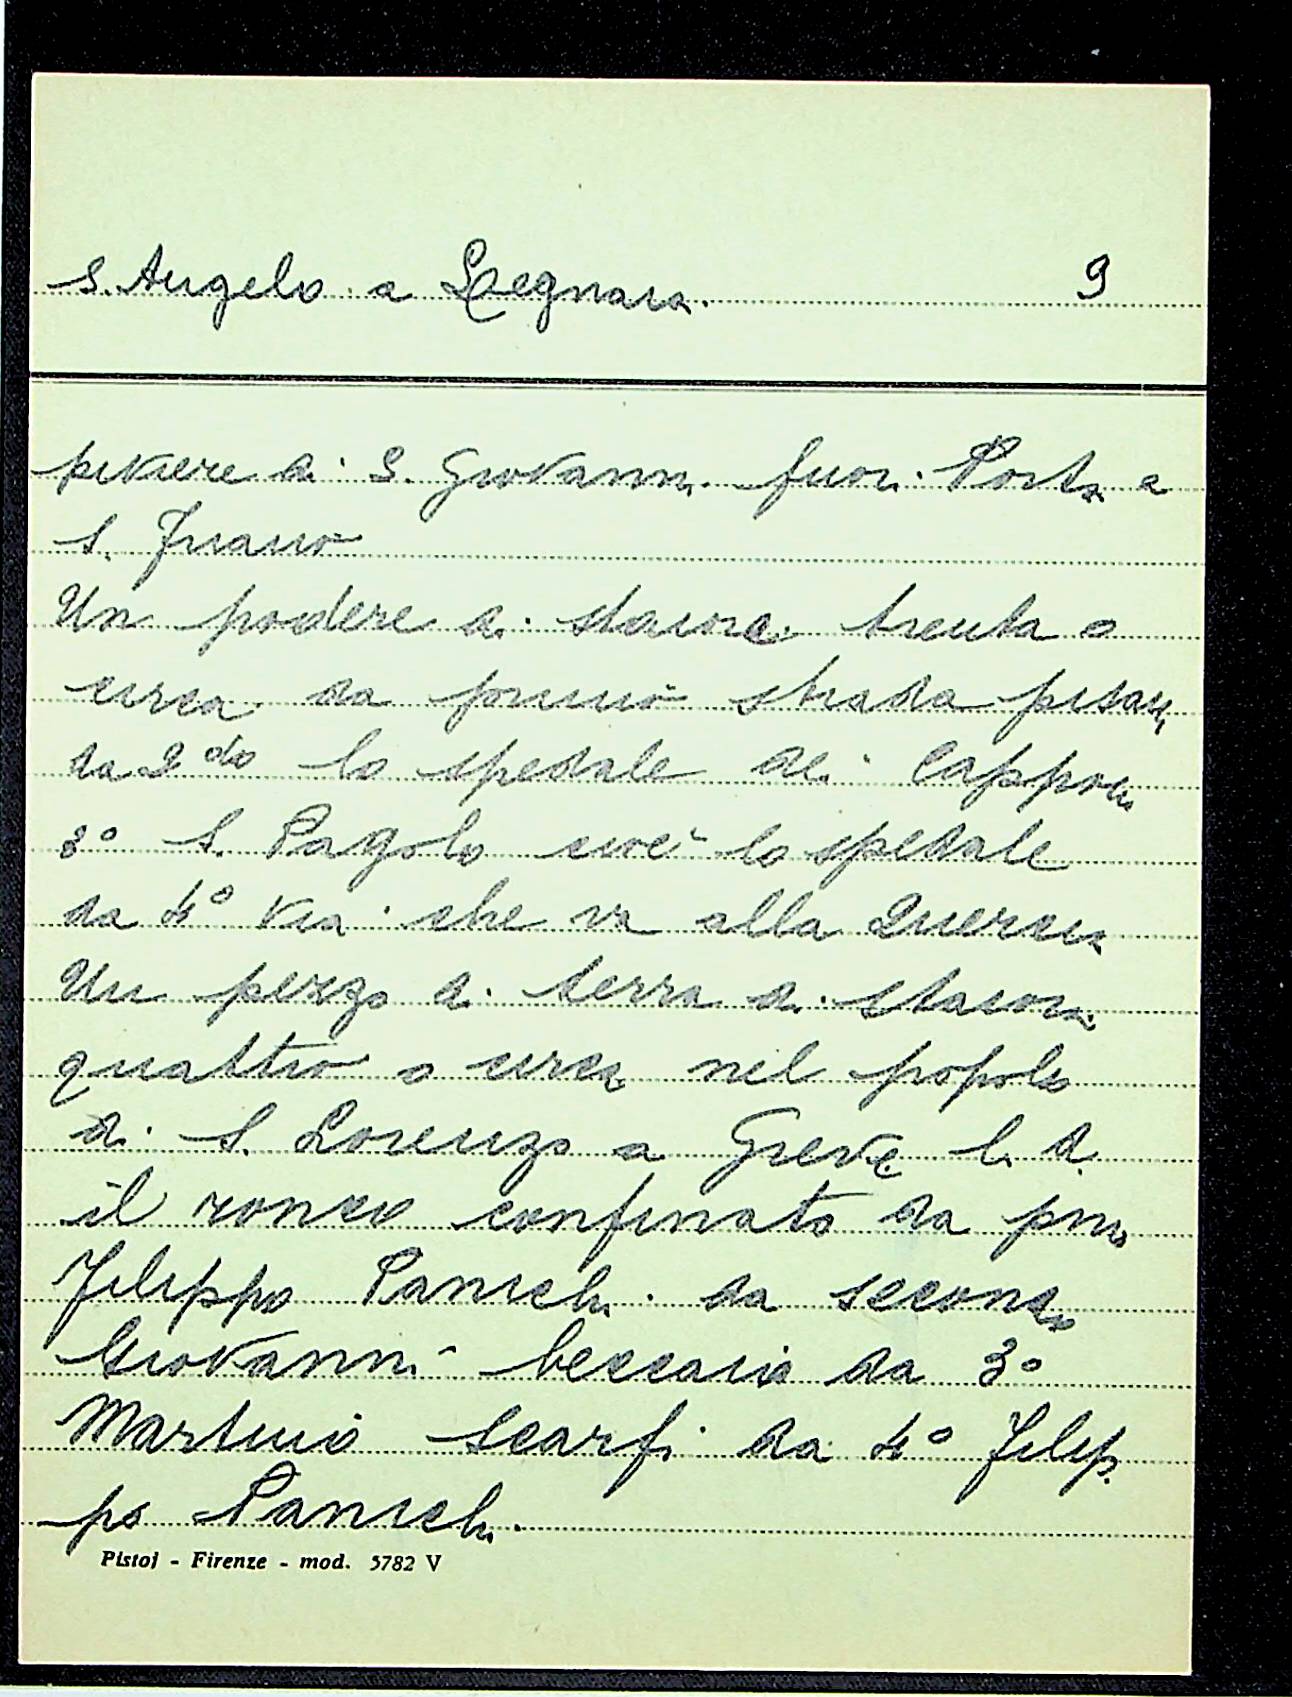 S. Angelo a Legnaia. 9
piviere di S. Giovanni fuori Porta a
S. Friano
Un podere di staiora trenta o
circa da primo strada pisana
da 2do lo spedale dei Capponi
3° S. Pagolo cioè lo spedale
da 4° via che va alla Quercia
Un pezzo di terra di staiora
quattro o circa nel popolo
di S. Lorenzo a Greve l. d.
il ronco confinato da pmo
Filippo Panichi da secondo
Giovanni beccaio da 3°
Martino Scarfi da 4° Filip
po Panichi.
Pistoj - Firenze - mod. 5782 V